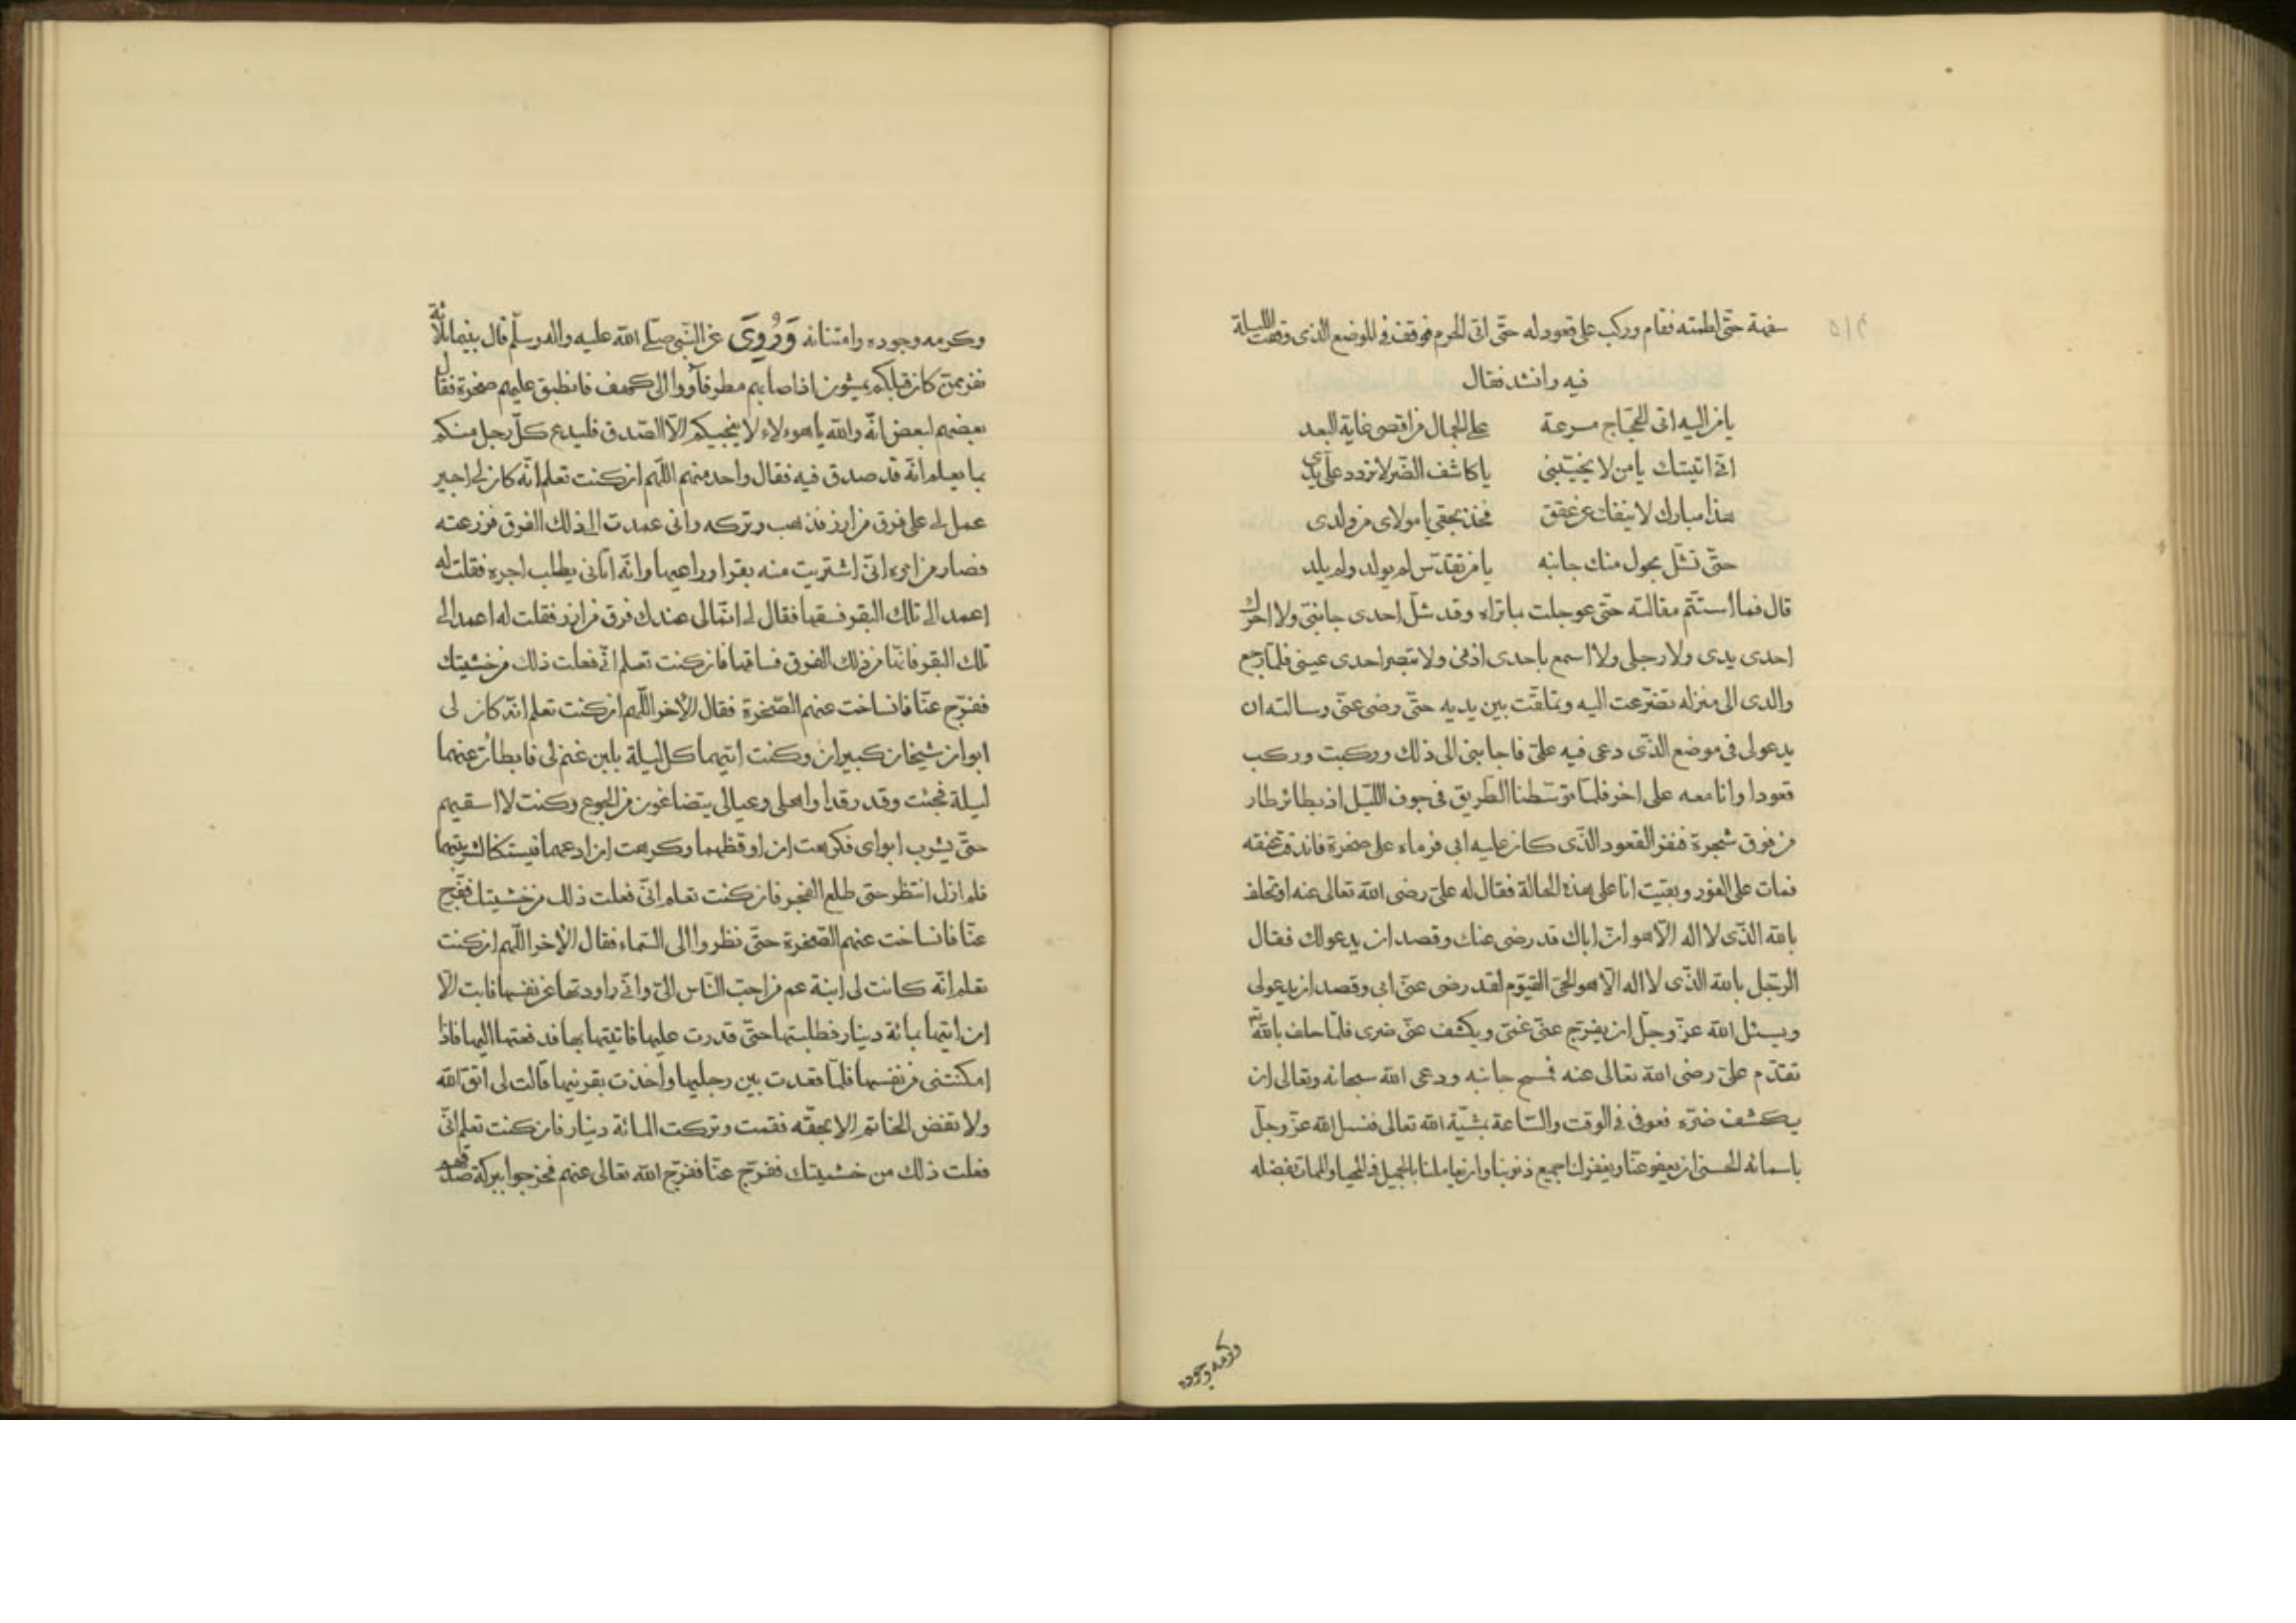 سفهة حتى لطمته فقام وركب على قعود له حتى اتى الحرم فوقف فى الموضع الذى وقفت الليلة
فيه وانشد فقال
يا من اليه اتى الحجاج مسرعة على الجمال من اقصى غاية البعد
انى اتيتك يا من لا يخيّبنى يا كاشف الضّر لا تردد علىّ يدى
هذا مبارك لا ينفك عن عققى فخذ بحقى يا مولاى من ولدى
حتّى تشلّ بحول منك جانبه يا من تقدّس لم يولد ولم يلد
قال فما استتمّ مقالته حتّى عوجلت بما تراه وقد شلّ احدى جانبىّ ولا احرّك
احدى يدى ولا رجلى ولا اسمع باحدى اذنى ولا تبصر احدى عينى فلمّا رجع
والدى الى منزله تضرّعت اليه وتملقت بين يديه حتّى رضى عنّى وسالته ان
يدعو لى فى موضع الذّى دعى فيه علىّ فاجابنى الى ذلك وركبت وركب
قعودا وانا معه على اخر فلمّا توسّطنا الطّريق فى جوف اللّيل اذ بطائر طار
من فوق شجرة فنفر القعود الذّى كان عليه ابى فرماه على صخرة فاندق عنقه
فمات على الفور وبقيت انا على هذه الحالة فقال له علىّ رضى الله تعالى عنه او تحلف
بالله الذّى لا اله الاّ هو انّ اباك قد رضى عنك وقصد ان يدعو لك فقال
الرّجل بالله الذّى لا اله الاّ هو الحىّ القيّوم لقد رضى عنّى ابى وقصد ان يدعو لى
ويسئل الله عزّ وجلّ ان يفرّج عنّى غمّى ويكشف عنّى ضرى فلمّا حلف بالله
تقدّم علىّ رضى الله تعالى عنه فمسح جانبه ودعى الله سبحانه وتعالى ان
يكشف ضرّه فعوفى فى الوقت والسّاعة بمشيّة الله تعالى فنسل الله عزّ وجلّ
باسمائه الحسنى ان يعفو عنّا ويغفر لنا جميع ذنوبنا وان يعاملنا بالجميل فى المحيا والممات بفضله
وكرمه وجوده
وكرمه وجوده وامتنانه وَرُوِىَ عن النّبى صلّى الله عليه واله وسلّم قال بينما ثلاثة
نفر ممن كان قبلكم يمشون اذا صابهم مطر فآووا الى كهف فانطبق عليهم صخرة فقال
بعضهم لبعض انّه والله يا هوءلاء لا ينجيكم الاّ الصّدق فليدع كلّ رجل منكم
بما يعلم انّه قد صدق فيه فقال واحد منهم اللّهم ان كنت تعلم انّه كان لى اجير
عمل لى على فرق من ارز فذهب وتركه وانى عمدت الى ذلك الفرق فزرعته
فصار من امره انّى اشتريت منه بقرا وراعيها وانّه اتانى يطلب اجره فقلت له
اعمد الى تلك البقر فسقها فقال لى انّما لى عندك فرق من ارز فقلت له اعمد الى
تلك البقر فانّها من ذلك الفرق فساقها فان كنت تعلم انّى فعلت ذلك من خشيتك
ففرّج عنّا فانساخت عنهم الصّخرة فقال الأخر اللّهم ان كنت تعلم انّه كان لى
ابوان شيخان كبيران وكنت اتيهما كل ليلة بلبن غنم لى فابطأت عنهما
ليلة فجئت وقد رقدا واهلى وعيالى يتضاغون من الجوع وكنت لا اسقيهم
حتّى يشرب ابواى فكرهت ان اوقظهما وكرهت ان ادعهما فيستكنا لشربتهما
فلم ازل انتظر حتى طلع الفجر فان كنت تعلم انّى فعلت ذلك من خشيتك ففرّج
عنّا فانساخت عنهم الصّخرة حتّى نظروا الى السّماء فقال الأخر اللّهم ان كنت
تعلم انّه كانت لى ابنة عم من احبّ النّاس الىّ وانّى راودتها عن نفسها فابت الاّ
ان اتيها بمائة دينار فطلبتها حتّى قدرت عليها فاتيتها بها فدفعتها اليها فاذا
امكنتنى من نفسها فلمّا قعدت بين رجليها واخذت بقرنيها قالت لى اتق الله
ولا تفض الخاتم الا بحقّه فقمت وتركت المائة دينار فان كنت تعلم انّى
فعلت ذلك من خشيتك ففرّج عنّا ففرّج الله تعالى عنهم فخرجوا ببركة صدقهم